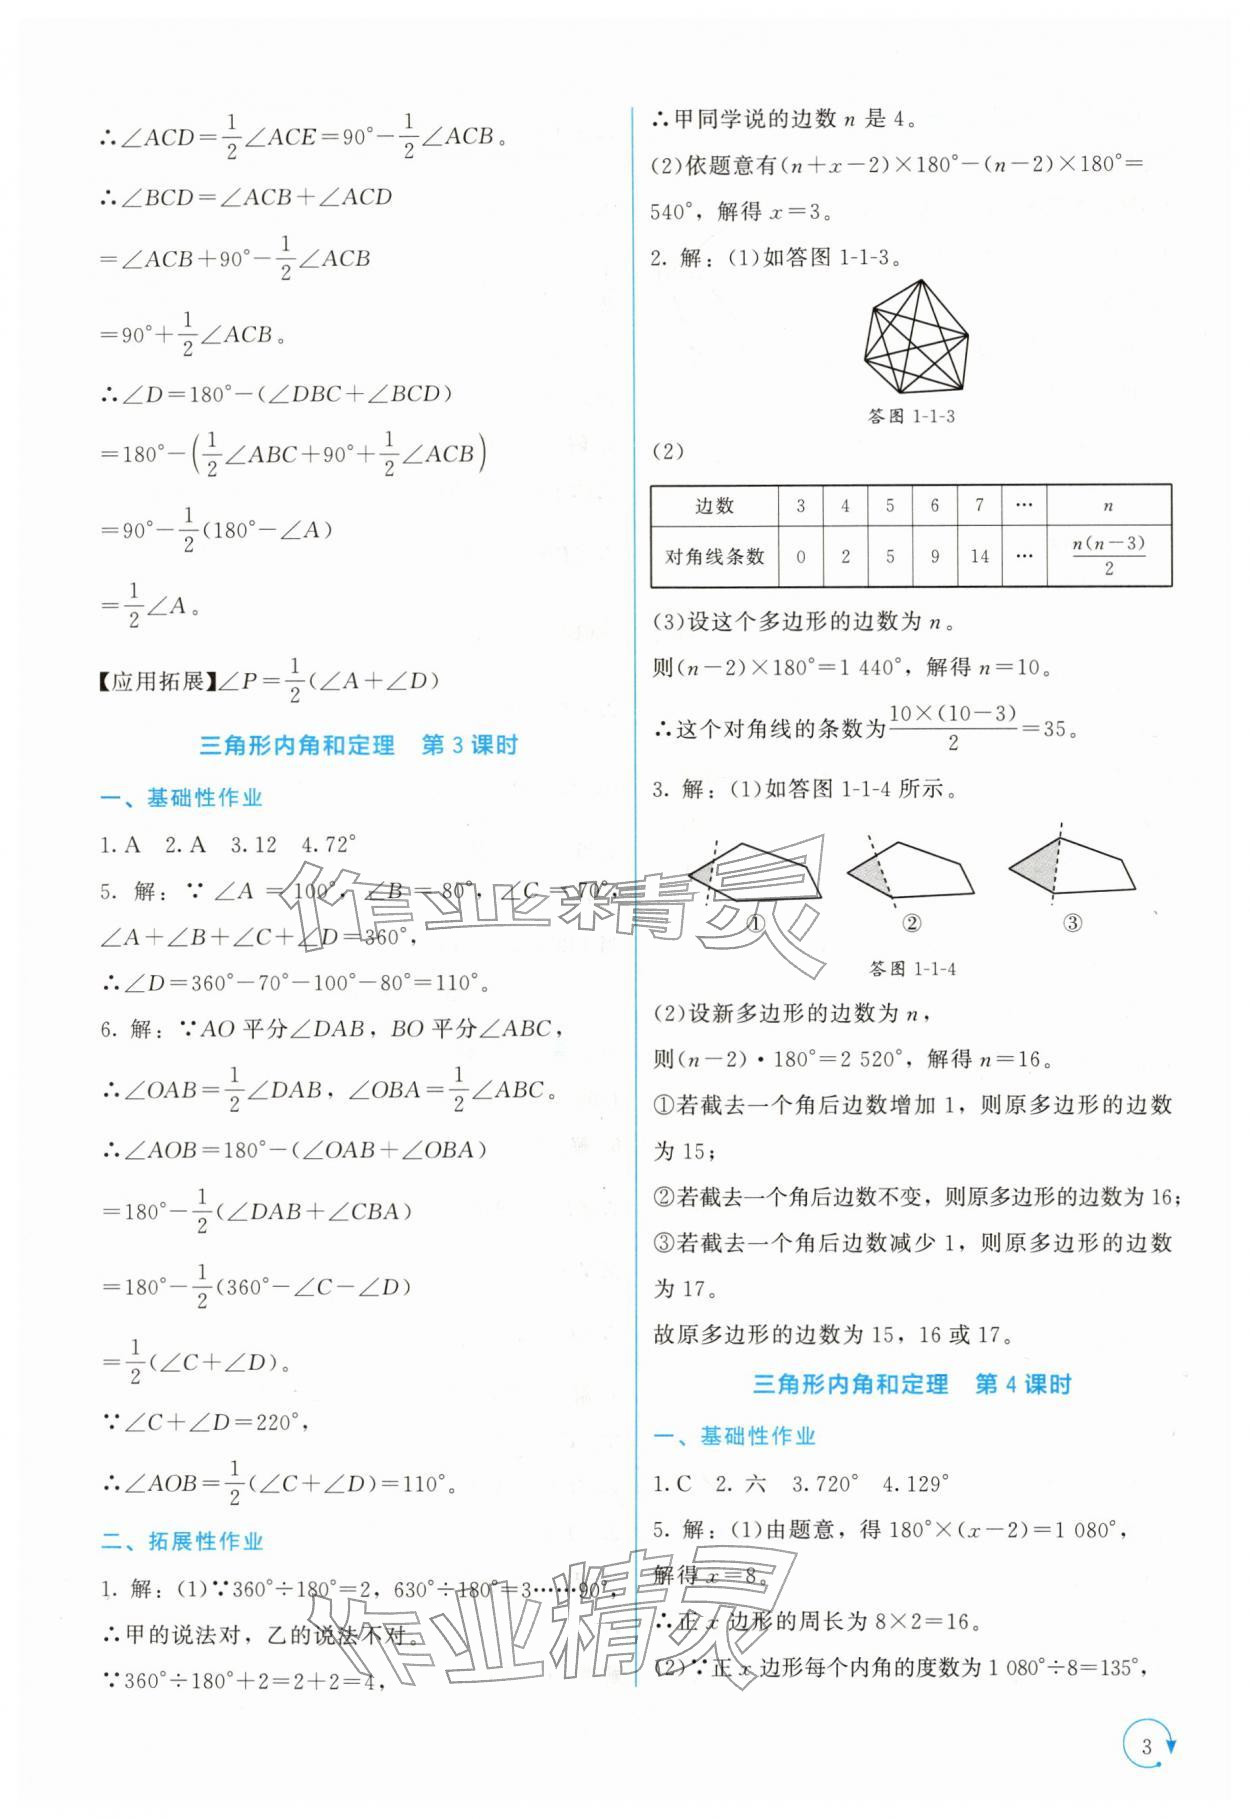 ∴∠ACD=1/2∠ACE=90°-1/2∠ACB。
∴∠BCD=∠ACB+∠ACD
=∠ACB+90°-1/2∠ACB
=90°+1/2∠ACB。
∴∠D=180°-(∠DBC+∠BCD)
=180°-(1/2∠ABC+90°+1/2∠ACB)
=90°-1/2(180°-∠A)
=1/2∠A。
【应用拓展】∠P=1/2(∠A+∠D)
三角形内角和定理 第3课时
一、基础性作业
1.A 2.A 3.12 4.72°
5. 解：∵∠A=100°，∠B=80°，∠C=70°，
∠A+∠B+∠C+∠D=360°，
∴∠D=360°-70°-100°-80°=110°。
6. 解：∵AO平分∠DAB，BO平分∠ABC，
∴∠OAB=1/2∠DAB，∠OBA=1/2∠ABC。
∴∠AOB=180°-(∠OAB+∠OBA)
=180°-1/2(∠DAB+∠CBA)
=180°-1/2(360°-∠C-∠D)
=1/2(∠C+∠D)。
∵∠C+∠D=220°，
∴∠AOB=1/2(∠C+∠D)=110°。
二、拓展性作业
1. 解：(1)∵360°÷180°=2，630°÷180°=3……90°，
∴甲的说法对，乙的说法不对。
∵360°÷180°+2=2+2=4，
∴甲同学说的边数n是4。
(2)依题意有(n+x-2)×180°-(n-2)×180°=
540°，解得x=3。
2. 解：(1)如答图1-1-3。
答图1-1-3
(2)
边数 3 4 5 6 7 … n
对角线条数 0 2 5 9 14 … n(n-3)/2
(3)设这个多边形的边数为n。
则(n-2)×180°=1 440°，解得n=10。
∴这个对角线的条数为10×(10-3)/2=35。
3. 解：(1)如答图1-1-4所示。
① ② ③
答图1-1-4
(2)设新多边形的边数为n，
则(n-2)·180°=2 520°，解得n=16。
①若截去一个角后边数增加1，则原多边形的边数
为15；
②若截去一个角后边数不变，则原多边形的边数为16；
③若截去一个角后边数减少1，则原多边形的边数
为17。
故原多边形的边数为15，16或17。
三角形内角和定理 第4课时
一、基础性作业
1.C 2.六 3.720° 4.129°
5. 解：(1)由题意，得180°×(x-2)=1 080°，
解得x=8。
∴正x边形的周长为8×2=16。
(2)∵正x边形每个内角的度数为1 080°÷8=135°，
作业精灵
作业精灵
3